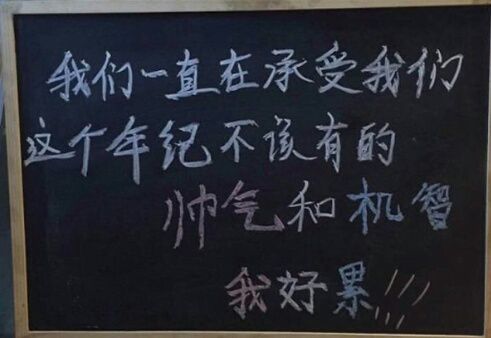 我们一直在承受我们
这个年纪不该有的
帅气和机智
我好累!!!